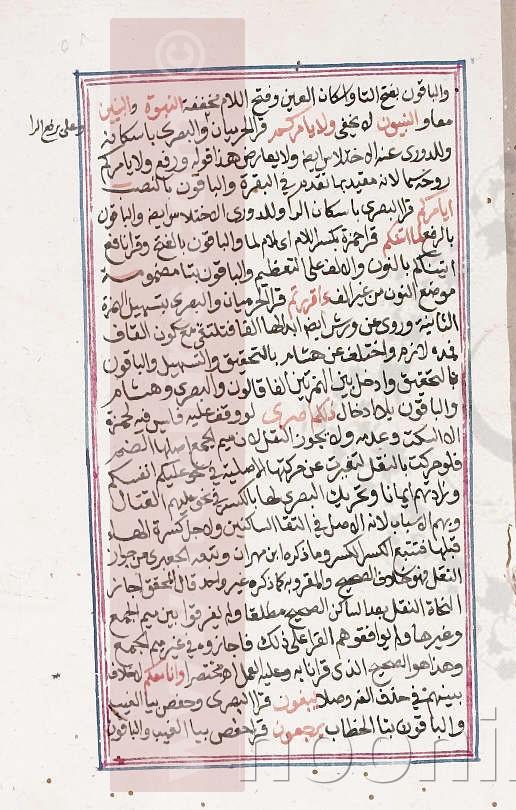 والباقون بفتح التا واسكان العين وفتح اللام مخففة النبوة والنبين
معا والنبيون لا يخفى ولا يامركم قرا الحرميان والبصري باسكانه
وعلي برفع الرا
وللدوري عنه الاختلاس ايضا ولا يعارض هذا قوله ورفع ولا يامركم
روحه سما لانه مقيد بما تقدم في البقرة والباقون بالنصب
ايامركم قرا البصري باسكان الرا وللدوري الاختلاس ايضا والباقون
بالرفع لما اتيتكم قرا حمزة بكسر اللام اي لام لما والباقون بالفتح وقرا نافع
اتيناكم بالنون والالف على التعظيم والباقون بتا مضمومة
موضع النون من غير الف ءاقررتم قرا الحرميان والبصري بتسهيل الهمزة
الثانية وروي عن ورش ايضا ابدالها الفا فتلتقي مع سكون القاف
فمده لازم واختلف عن هشام بالتحقيق والتسهيل والباقون
بالتحقيق وادخل بين الهمزتين الفا قالون والبصري وهشام
والباقون بلا ادخال ذلكم اصري لو وقف عليه فليس فيه لحمزة
الا السكت وعدمه ولا يجوز النقل لان ميم الجمع اصلها الضم
فلو حركت بالنقل لتغيرت عن حركتها الاصلية في نحو عليكم انفسكم
وزادهم ايمانا وتحريك البصري لها بالكسر في نحو عليهم القتال
وبهم الاسباب لانه الاصل في التقا الساكنين ولاجل كسرة الهاء
قبلها فتتبع الكسر الكسر وما ذكره ابن مهران وتبعه الجعبري من جواز
النقل فهو خلاف الصحيح والمقرو به كما ذكره غير واحد قال المحقق اجاز
النحاة النقل بعد الساكن الصحيح مطلقا ولم يفرقوا بين ميم الجمع
وغيرها ولم يوافقوهم القرا على ذلك فاجازوه في غير ميم الجمع
وهذا هو الصحيح الذي قرانا به وعليه العمل اه مختصرا وانا معكم لا خلاف
بينهم في حذف الفه وصلا يبغون قرا البصري وحفص بيا الغيب
والباقون بتا الخطاب يرجعون قرا حفص بيا الغيب والباقون
nooni